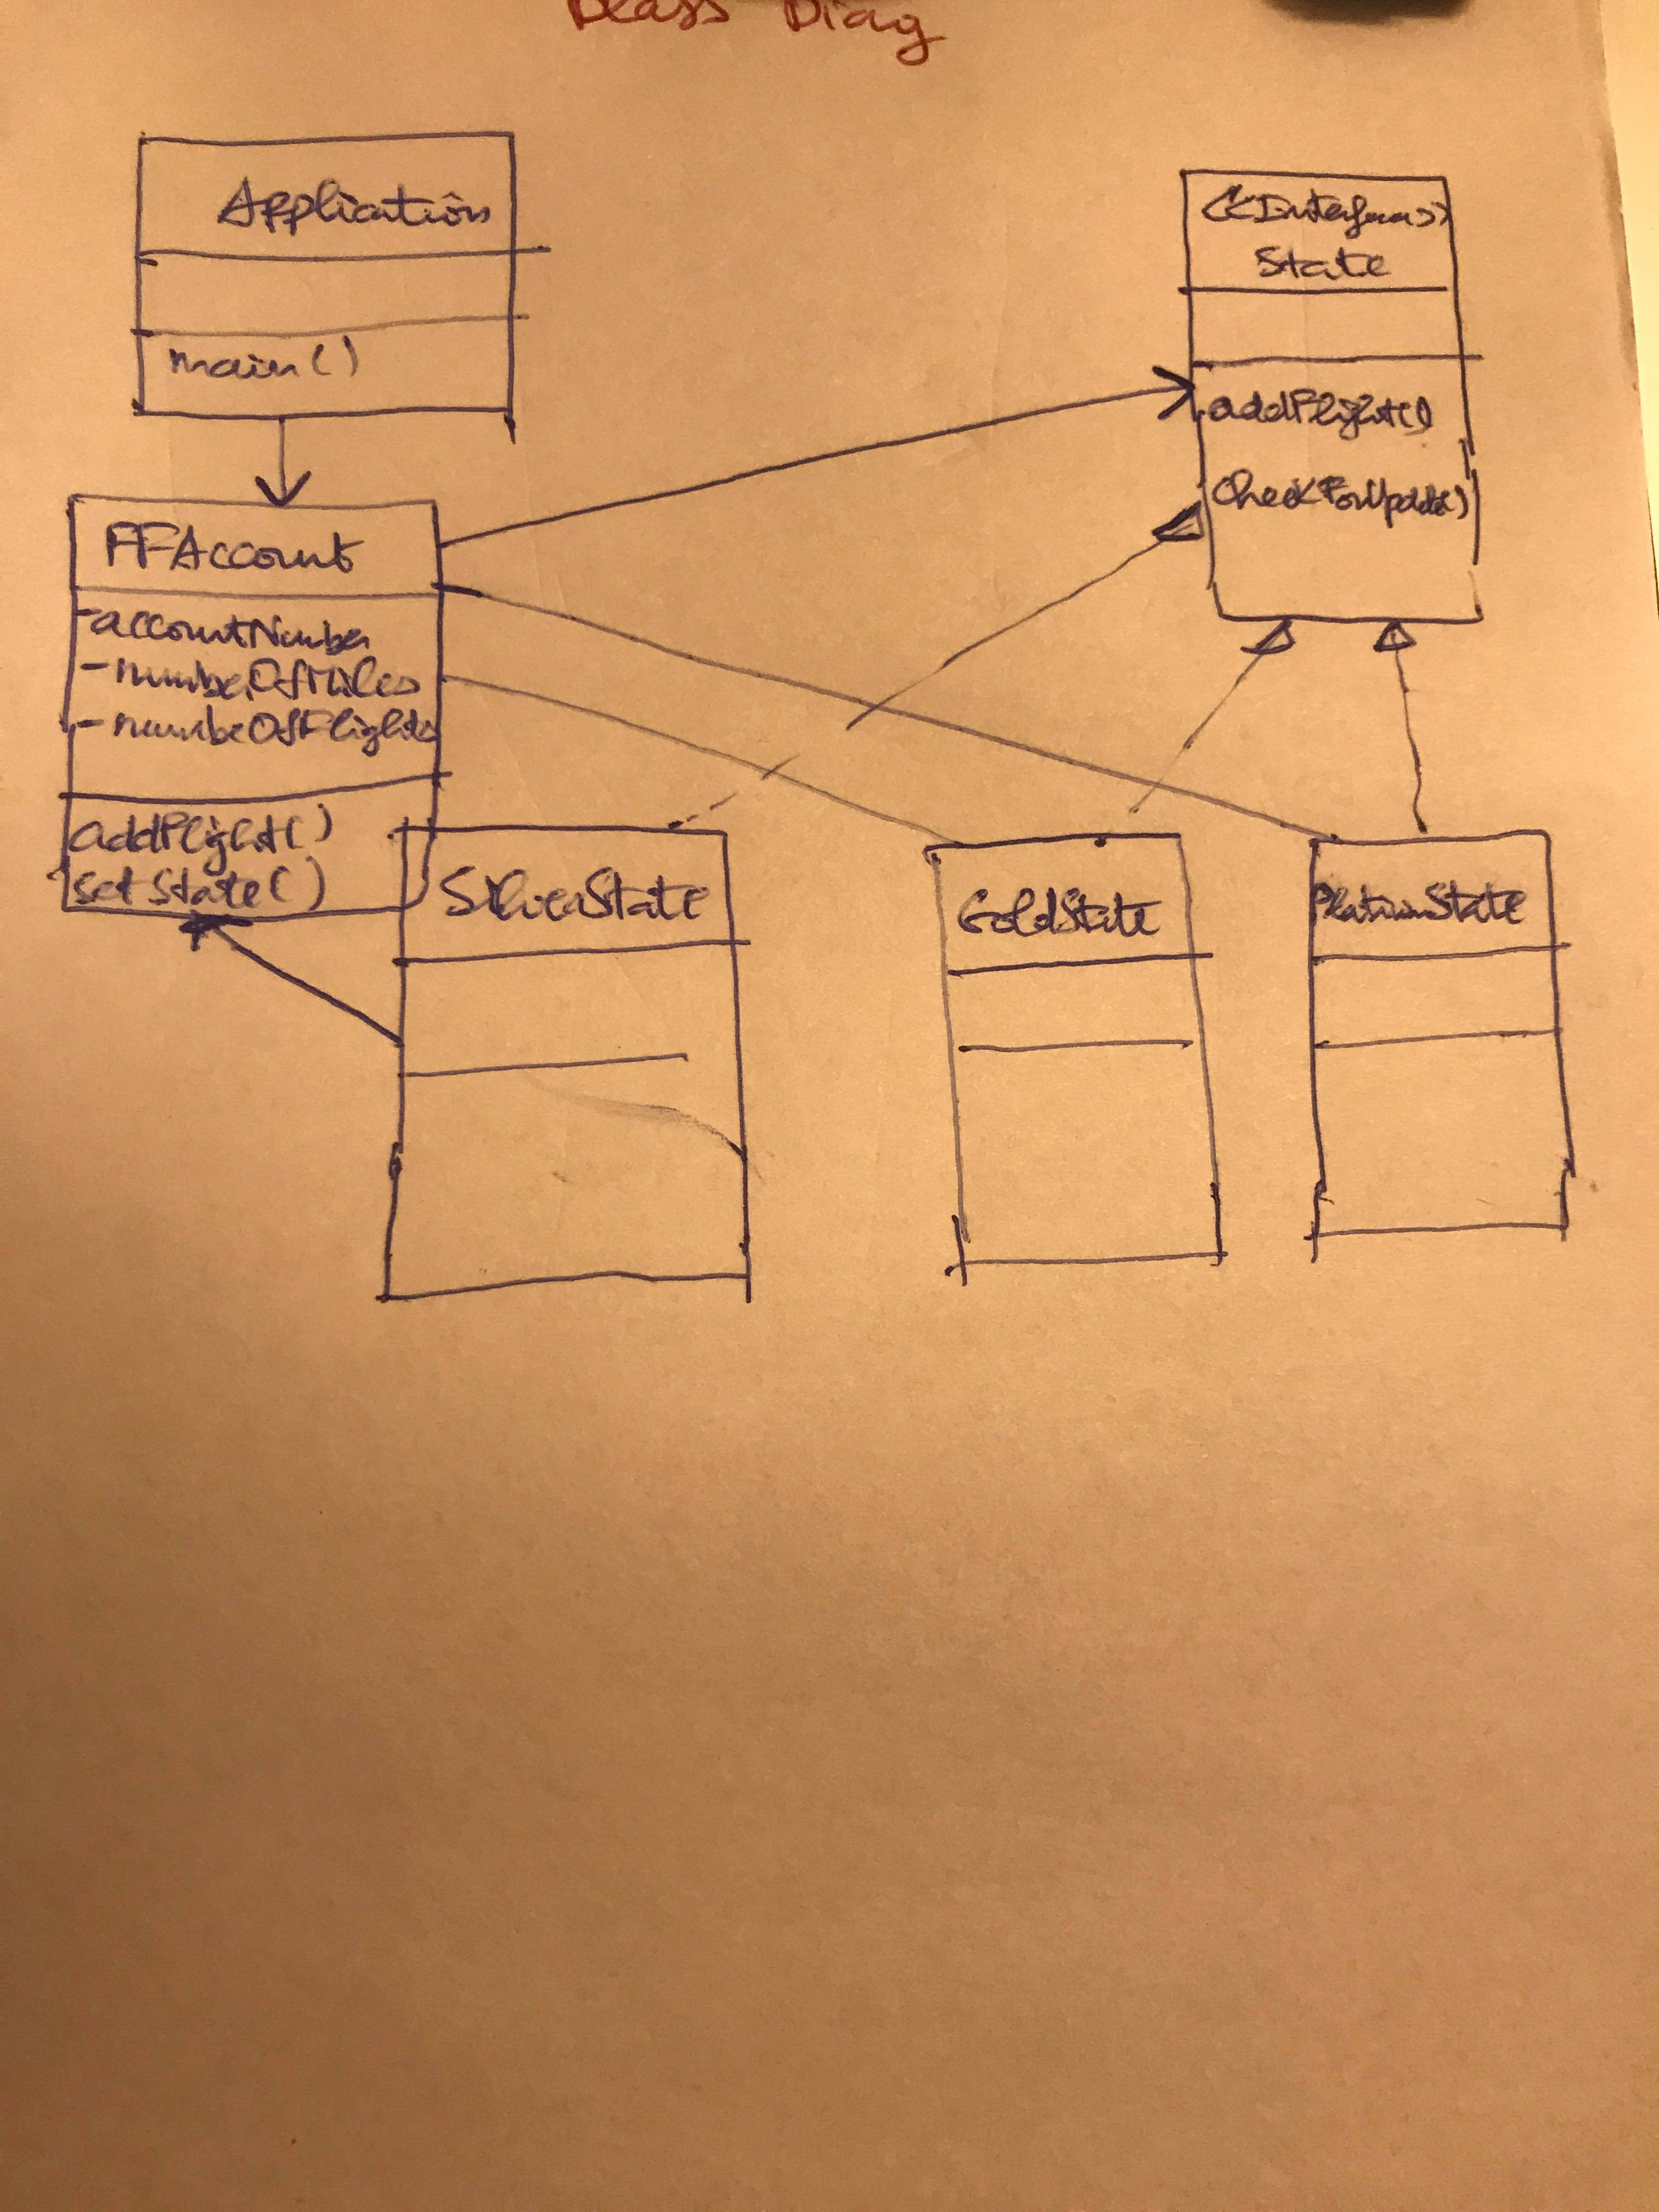 Class Diag
Application
main()
<<Interface>>
State
addFlight()
checkForUpdate()
FFAccount
-accountNumber
-numberOfMiles
-numbeOfFlights
addFlight()
setState()
SilverState
GoldState
PlatinumState